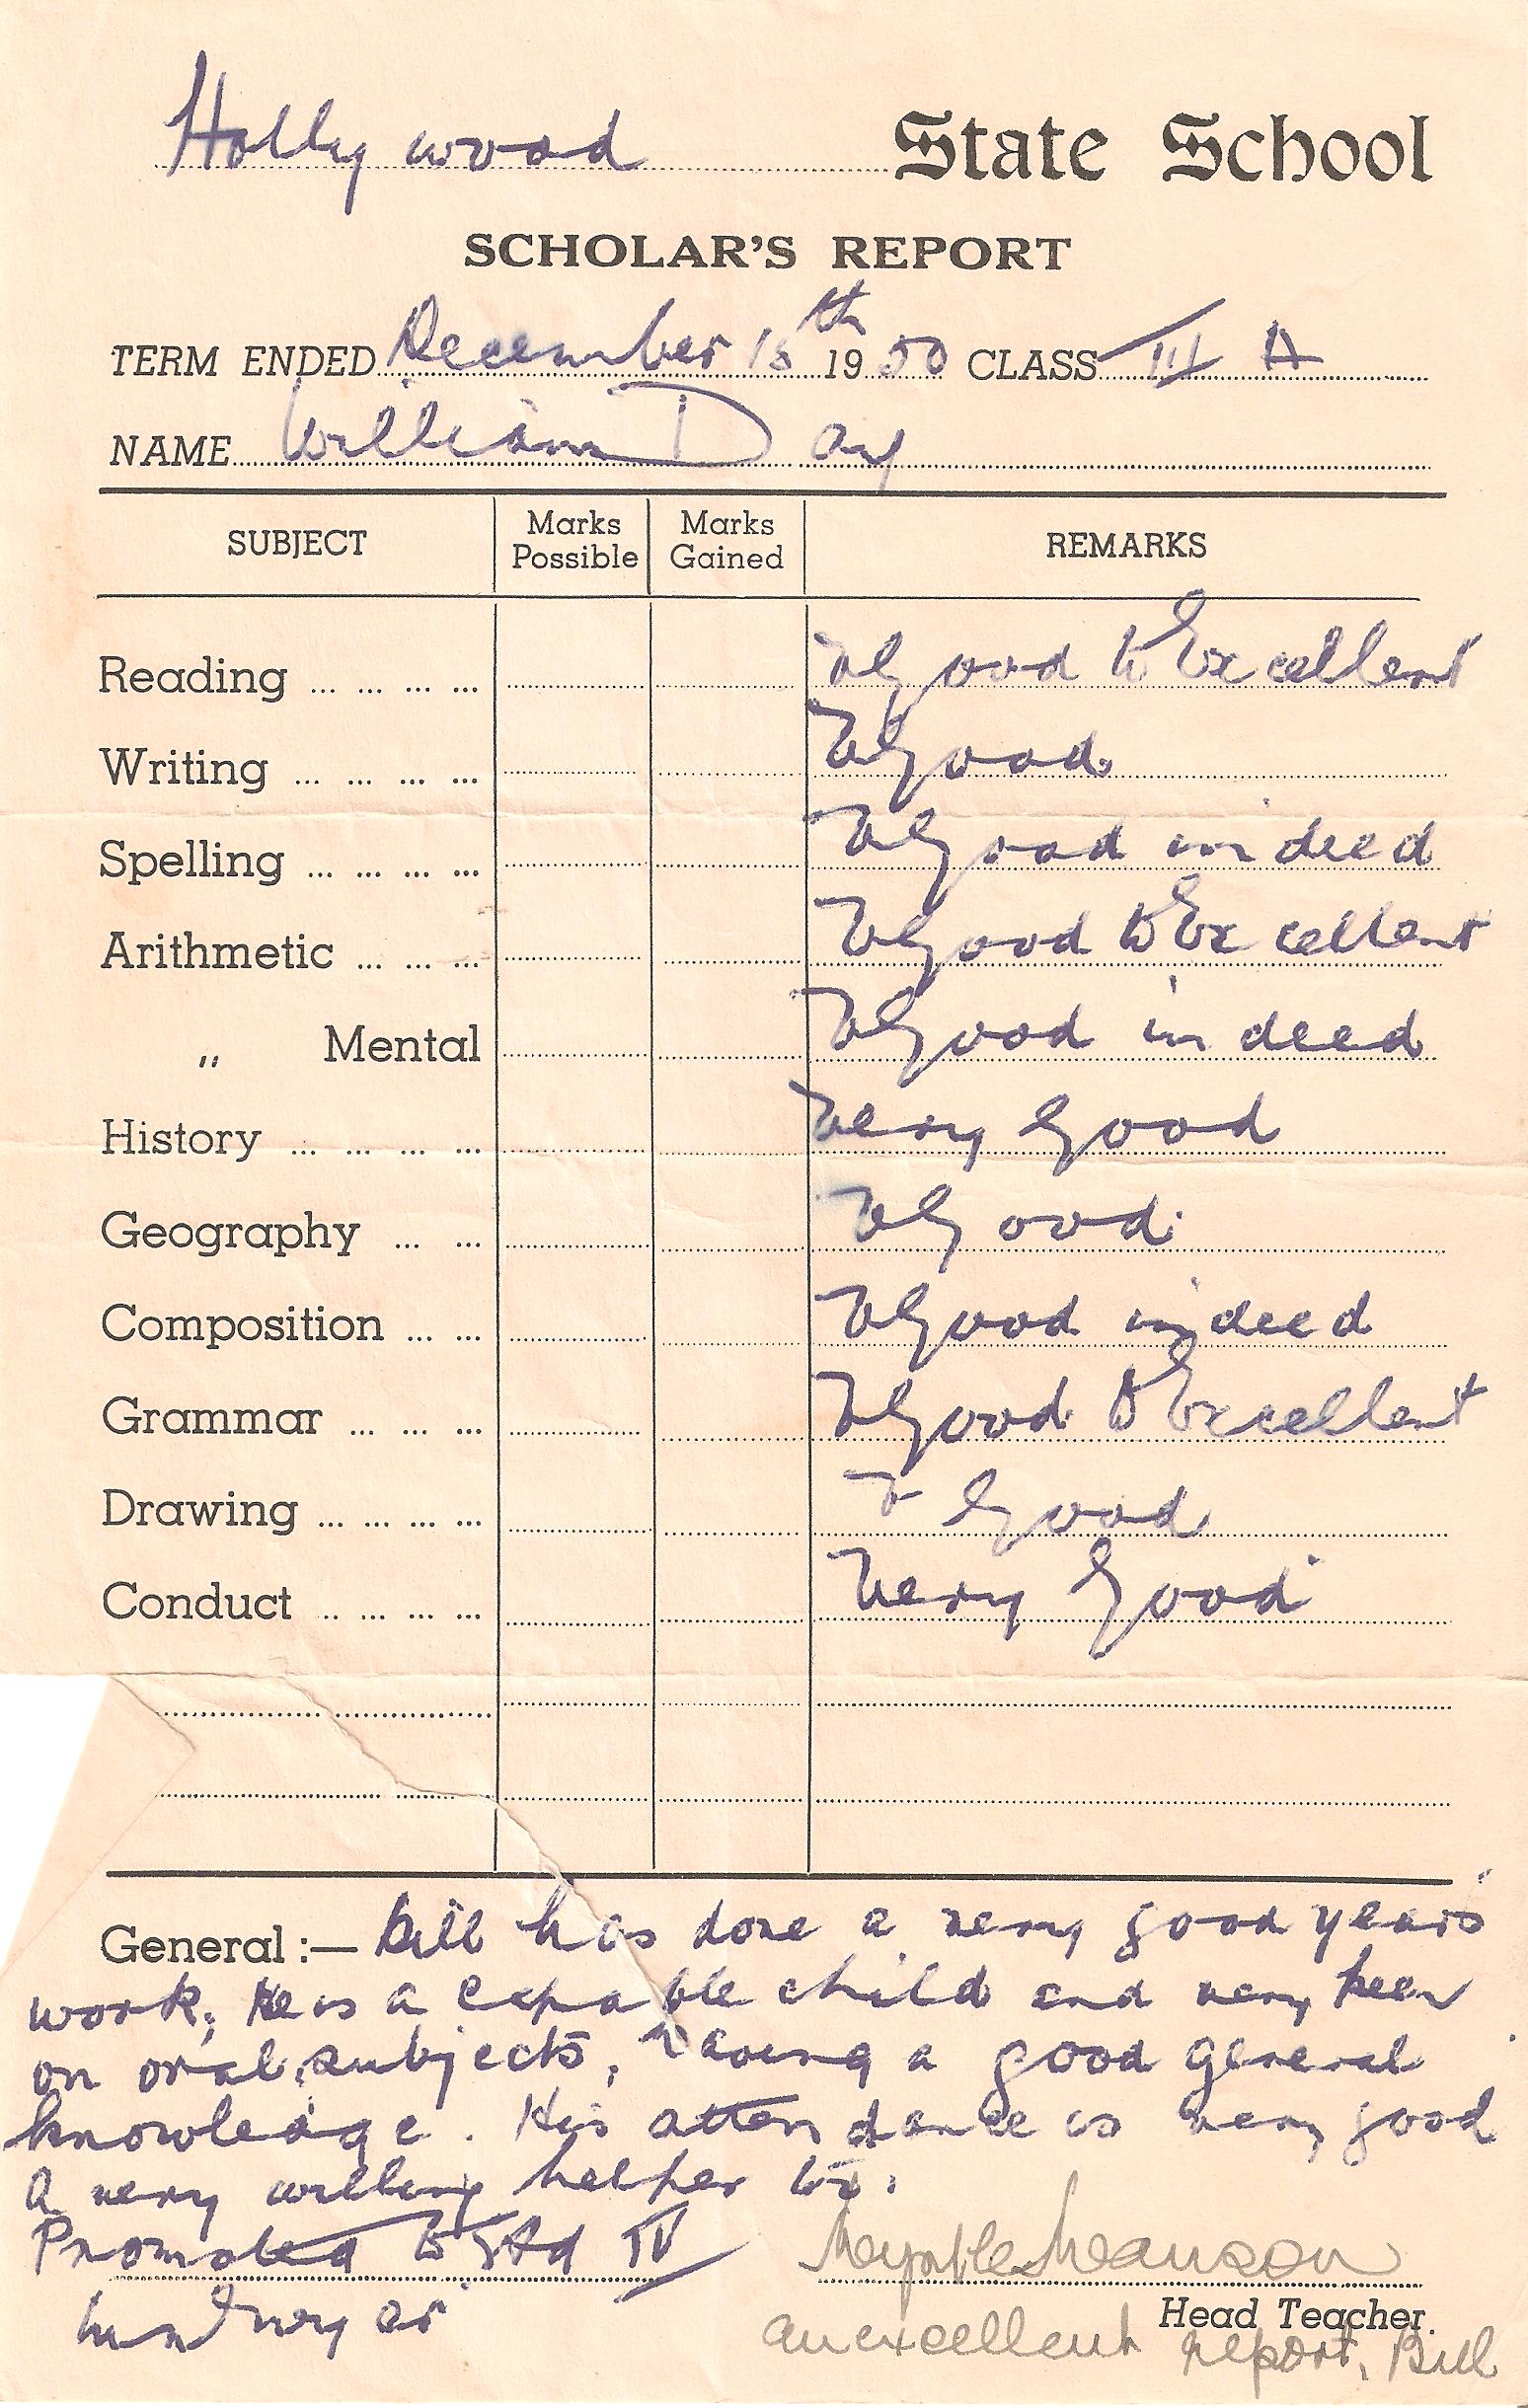 Hollywood State School
SCHOLAR'S REPORT
TERM ENDED December 18th 1950 CLASS III A
NAME William Day
SUBJECT Marks Possible Marks Gained REMARKS
Reading ... ... ... ... V Good to Excellent
Writing ... ... ... ... V Good.
Spelling ... ... ... ... V Good indeed
Arithmetic ... ... ... V Good to Excellent
„ Mental V Good indeed
History ... ... ... ... Very Good
Geography ... ... V Good.
Composition ... ... V Good indeed
Grammar ... ... ... V Good to Excellent
Drawing ... ... ... ... V Good
Conduct .. ... ... ... Very Good
General :— Bill has done a very good years
work; He is a capable child and very keen
on oral subjects, having a good general
knowledge. His attendance is very good
A very willing helper too.
Promoted to Std IV
Head Teacher.
an excellent report, Bill